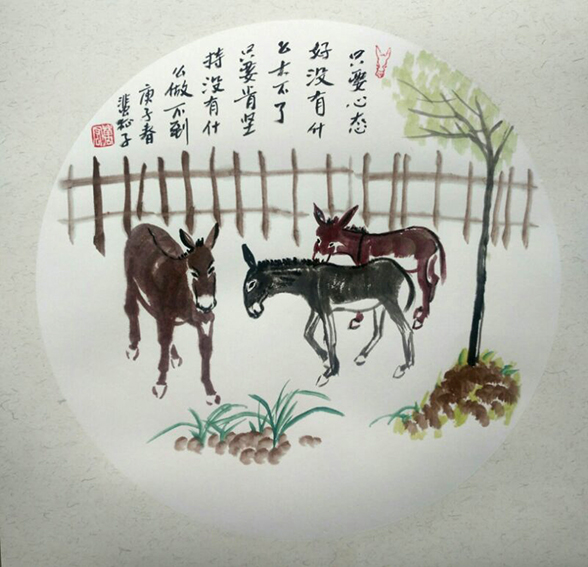 只要心态
好没有什
么大不了
只要肯坚
持没有什
么做不到
庚子春